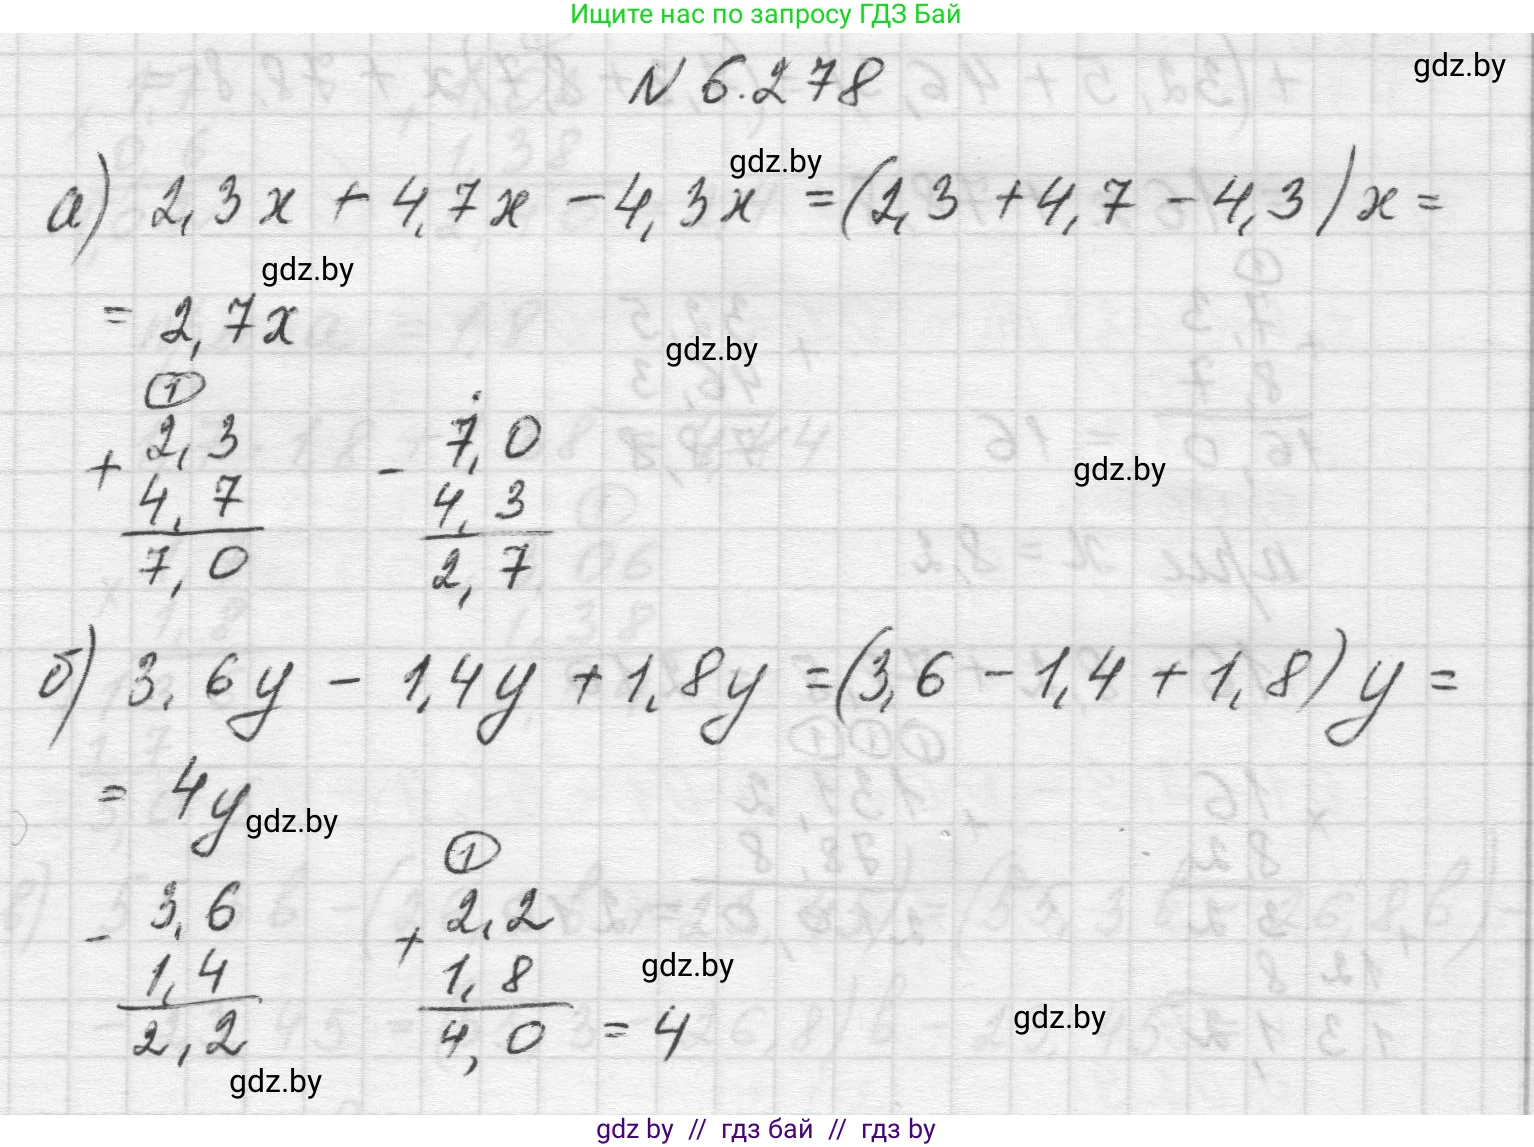 Ищите нас по запросу ГДЗ Бай
N 6.278
gdz.by
gdz.by
а) 2,3x + 4,7x - 4,3x = (2,3 + 4,7 - 4,3)x =
gdz.by
= 2,7x
gdz.by
1
+ 2,3 - 7,0
4,7 4,3
gdz.by
7,0 2,7
б) 3,6y - 1,4y + 1,8y = (3,6 - 1,4 + 1,8)y =
= 4y
gdz.by
1
- 3,6 + 2,2
1,4 1,8
gdz.by
2,2 4,0 = 4
gdz.by
gdz.by
gdz by // гдз бай // гдз by